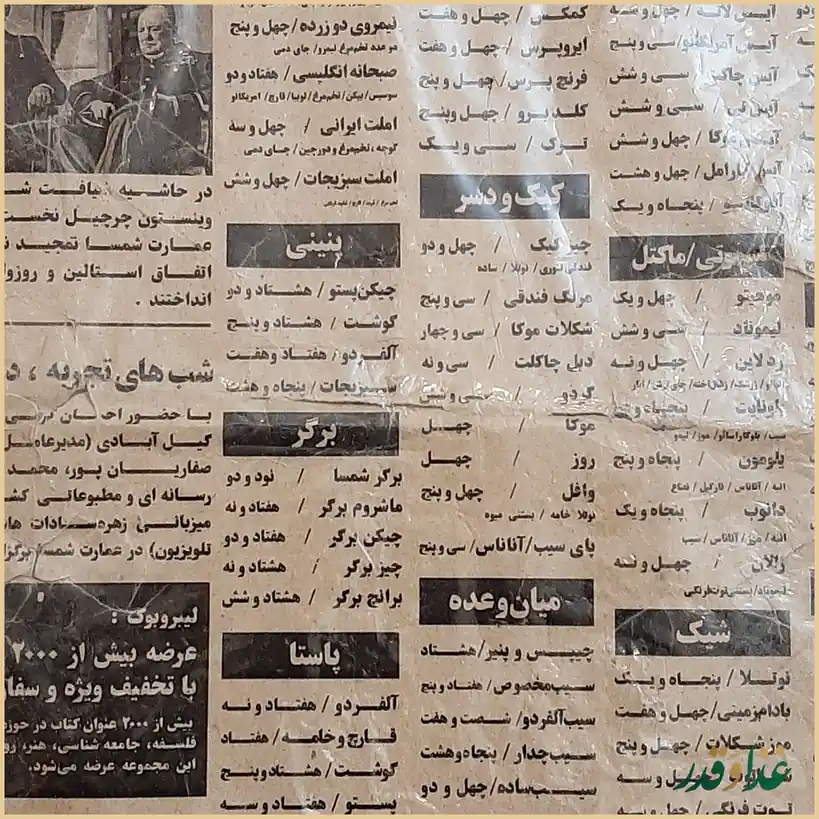 آیس آمریکانو/سی و پنج
آیس چاکلت / سی و شش
آیس تی / سی و شش
آیس موکا / چهل و شش
آیس کارامل / چهل و هشت
پنجاه و یک
/ماکتل
موهیتو / چهل و یک
لیموناد / سی و شش
رد لاین / چهل و نه
پنجاه و
پنجاه و پنج
انبه / آناناس / نارگیل / نعناع
دانوب / پنجاه و یک
انبه / موز / آناناس / سیب
چهل و نه
لیموناد/بستنی توت‌فرنگی
شیک
نوتلا / پنجاه و یک
بادام‌زمینی/چهل و هفت
موز شکلات / چهل و پنج
چهل و سه
توت فرنگی / چهل و نه
چهل و هفت
ایروپرس / چهل و هفت
فرنچ پرس/چهل و پنج
کلد برو / چهل و پنج
ترک / سی و یک
کیک و دسر
چیزکیک / چهل و دو
نوتلا / ساده
مرنگ فندقی / سی و پنج
شکلات موکا / سی و چهار
دبل چاکلت / سی و نه
گردو / سی و شش
موکا / چهل
روز / چهل
وافل / چهل و پنج
نوتلا خامه / بستنی میوه
پای سیب/آناناس/ سی و پنج
میان وعده
چیپس و پنیر/هشتاد
سیب‌مخصوص/ هفتاد و پنج
سیب‌آلفردو/ شصت و هفت
سیب‌چدار / پنجاه‌وهشت
سیب‌ساده/چهل و دو
نیمروی دو زرده/چهل و پنج
دو عدد تخم‌مرغ نیمرو/ چای دمی
صبحانه انگلیسی/ هفتاد و دو
سوسیس/بیکن/تخم‌مرغ/لوبیا/قارچ/آمریکانو
املت ایرانی / چهل و سه
گوجه، تخم‌مرغ و دورچین / چای دمی
املت سبزیجات/ چهل و شش
پنینی
چیکن‌پستو / هشتاد و دو
گوشت / هشتاد و پنج
آلفردو/ هفتاد وهفت
سبزیجات/ پنجاه و هشت
برگر
برگر شمسا / نود و دو
ماشروم برگر / هفتاد و نه
چیکن برگر / هفتاد و دو
چیز برگر / هشتاد و نه
برانچ برگر / هشتاد و شش
پاستا
آلفردو/ هفتاد و نه
قارچ و خامه/ هفتاد
گوشت/ هشتاد و پنج
پستو / هفتاد و سه
در حاشیه ضیافت
وینستون چرچیل نخست
عمارت شمسا تمجید
اتفاق استالین و روزو
انداختند .
شب های تجربه ،
با حضور
گیل آبادی (مدیرعامل
صفاریان پور، محمد
رسانه ای و مطبوعاتی
میزبانی زهره‌سادات
تلویزیون) در عمارت شمسا
لیبروبوک :
عرضه بیش از ۲۰۰۰
با تخفیف ویژه و
بیش از ۲۰۰۰ عنوان کتاب در حوزه
فلسفه، جامعه شناسی، هنر،
این مجموعه عرضه می‌شود.
غذا و قدر